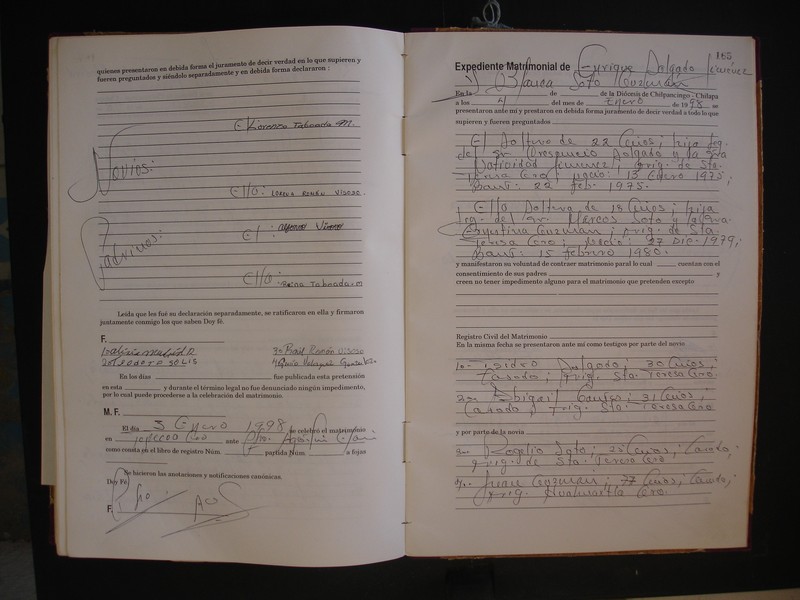 quienes presentaron en debida forma el juramento de decir verdad en lo que supieren y
fueren preguntados y siéndolo separadamente y en debida forma declararon :
El: Lorenzo Taboada M.
Novios:
Ella: Lorena Román Vidoso
El: Alfonso Vidoso
Padrinos:
Ella: Reina Taboada M
Leída que les fué su declaración separadamente, se ratificaron en ella y firmaron
juntamente conmigo los que saben Doy fé.
F.
3o Raul Román Vidoso
2o Teodoro Solis
En los días fue publicada esta pretensión
en esta y durante el término legal no fue denunciado ningún impedimento,
por lo cual puede procederse a la celebración del matrimonio.
M. F.
El día 3 Enero 1998 se celebró el matrimonio
en Gro ante Pbro.
como consta en el libro de registro Núm. partida Núm a fojas
Se hicieron las anotaciones y notificaciones canónicas
Doy Fé
F.
165
Expediente Matrimonial de Enrique Delgado Jiménez
y Blanca Soto Guzmán
En la de de la Diócesis de Chilpancingo - Chilapa
a los 4 del mes de Enero de 1998. se
presentaron ante mi y prestaron en debida forma juramento de decir verdad a todo lo que
supieren y fueren preguntados
El Soltero de 22 años; hijo leg.
de Sr. Crescencio Delgado y la Sra
Natividad Jimenez; orig. de Sta.
Teresa Gro; nació: 13 Enero 1975;
Baut: 22 feb. 1975.
Ella Soltera de 18 años; hija
leg. del Sr Marcos Soto y la Sra.
Agustina Guzmán; orig. de Sta.
Teresa Gro; nació: 27 Dic. 1979;
Baut: 15 febrero 1980.
y manifestaron su voluntad de contraer matrimonio para lo cual cuentan con el
consentimiento de sus padres y
creen no tener impedimento alguno para el matrimonio que pretenden excepto
Registro Civil del Matrimonio
En la misma fecha se presentaron ante mí como testigos por parte del novio
1o.- Isidro Delgado; 30 años;
Casado; Orig. Sta. Teresa Gro.
2o- Abigail; 31 años;
Casado; Orig. Sta. Teresa Gro
y por parte de la novia
3o- Rogelio Soto; 25 años; Casado,
y orig. de Sta. Teresa Gro
4o.- Juan Guzmán; años, Casado;
orig. Gro.